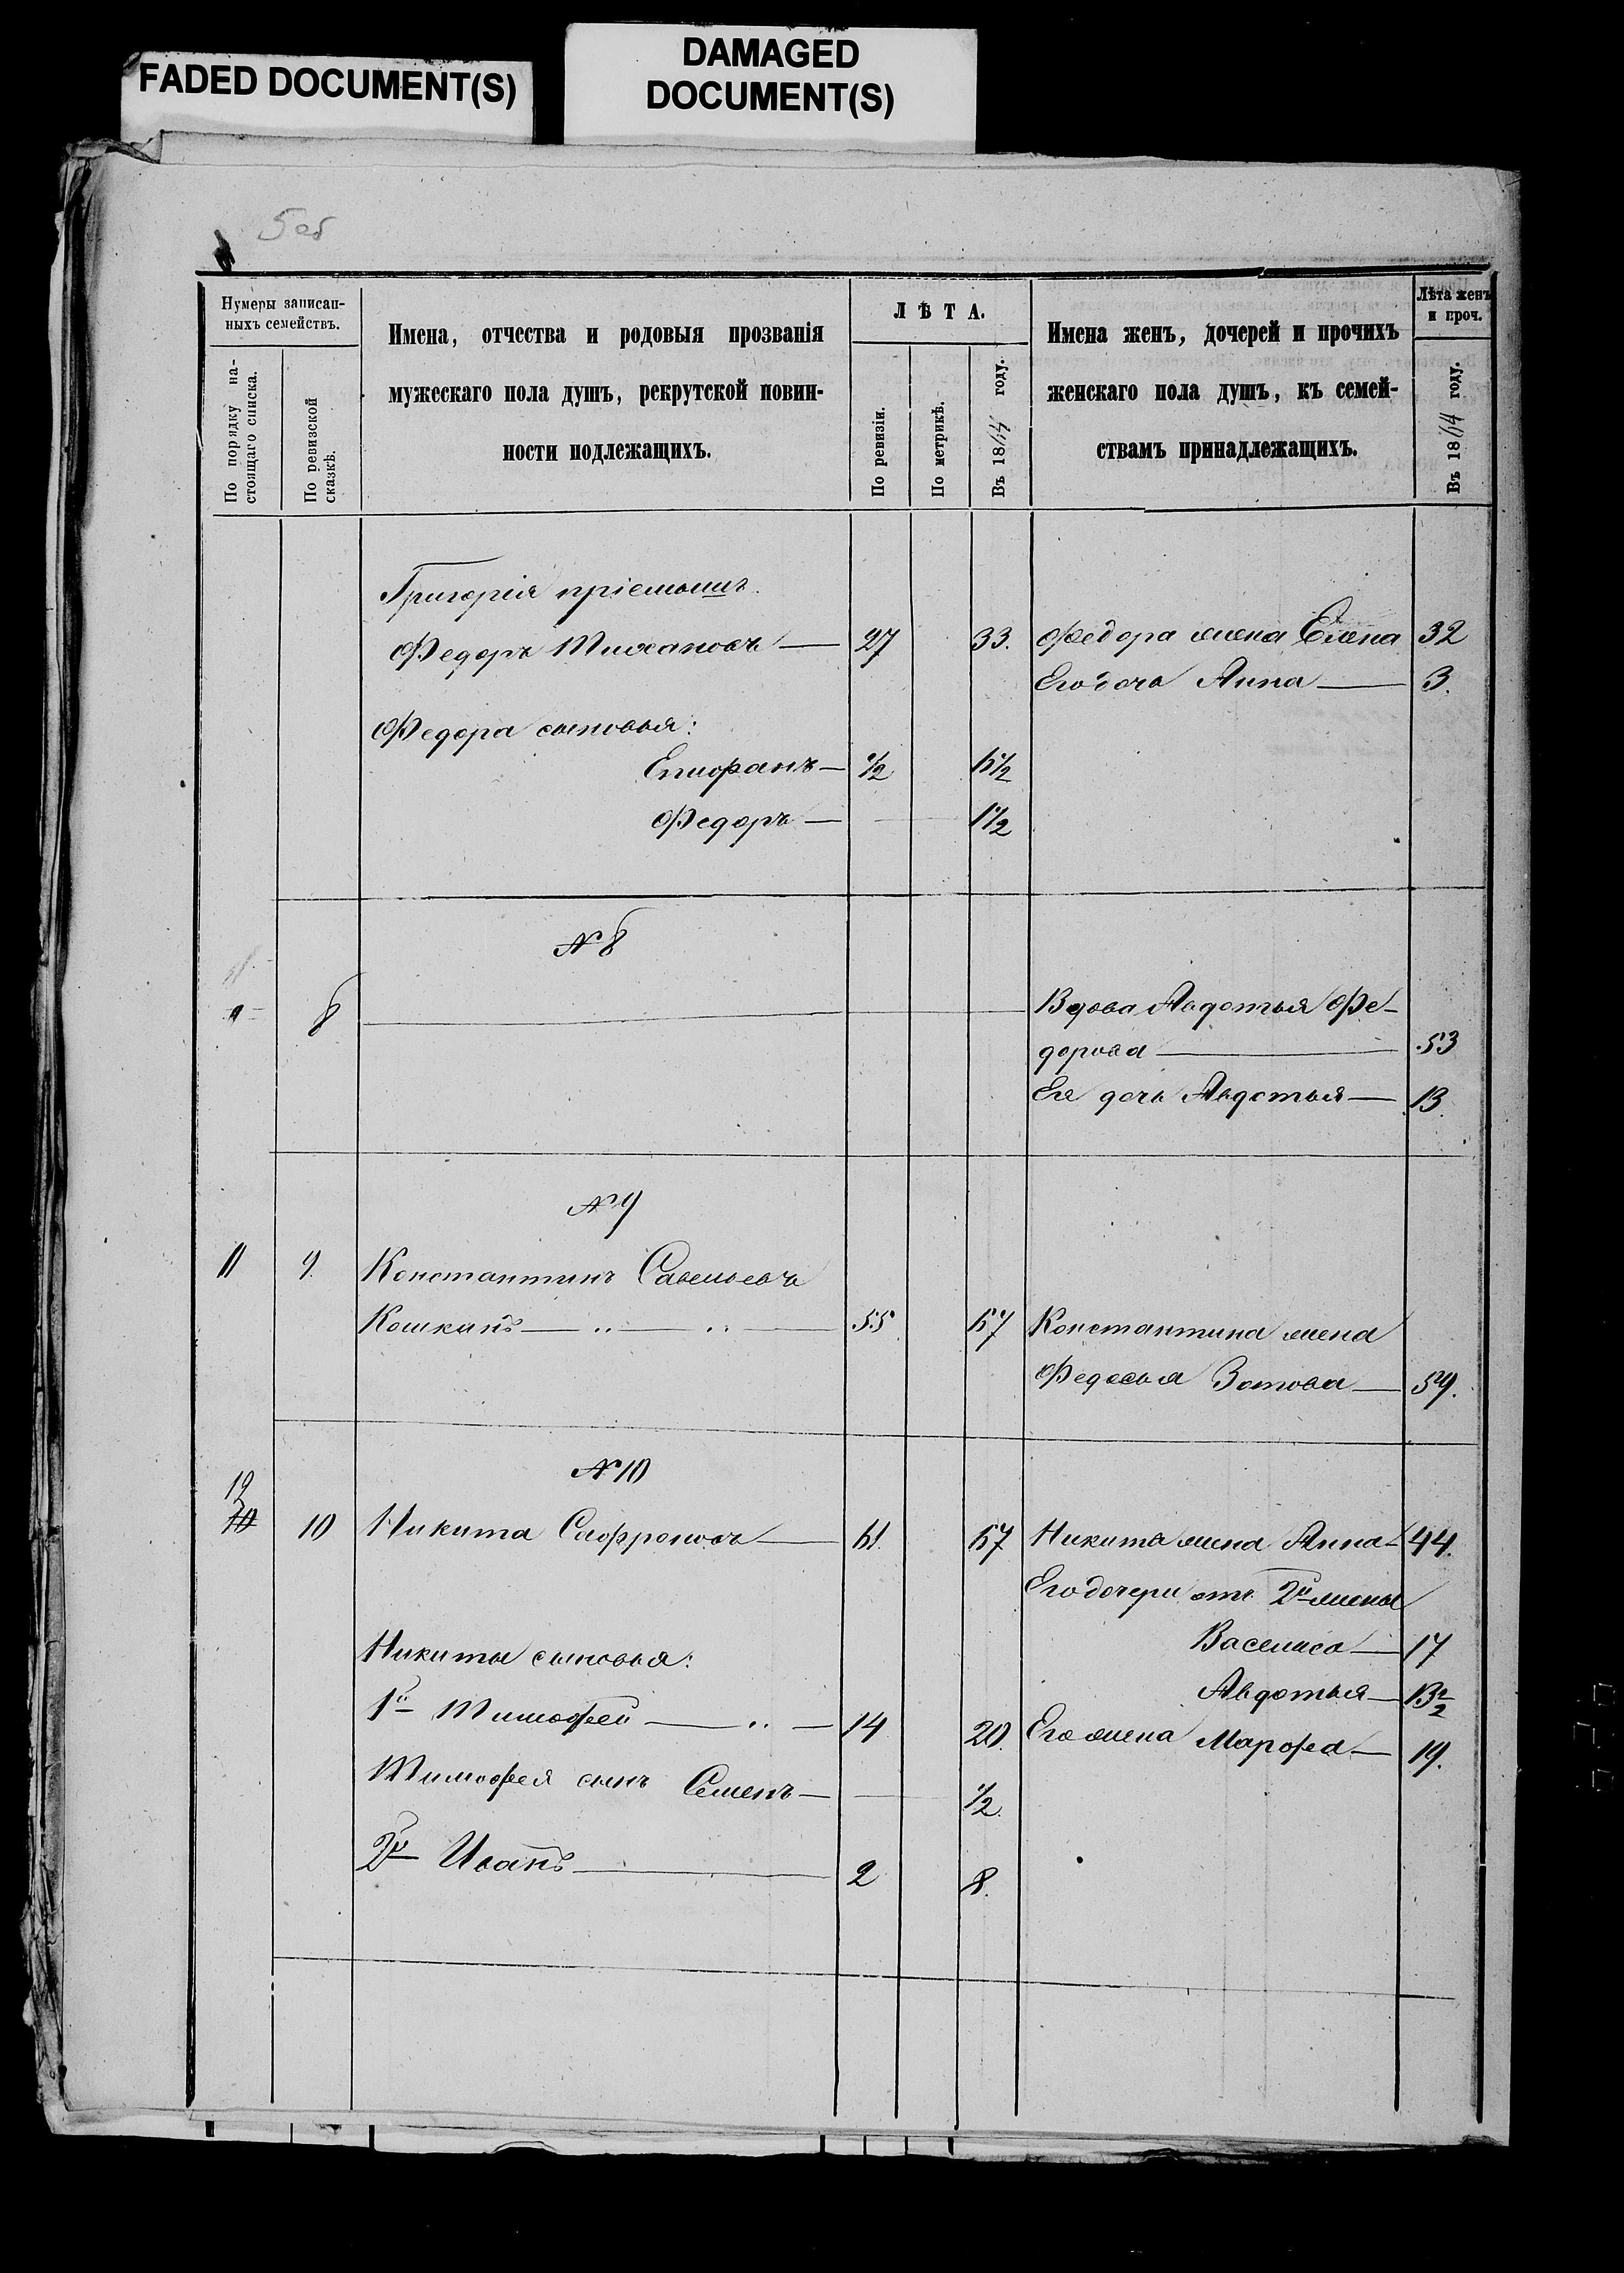 FADED DOCUMENT(S)
DAMAGED
DOCUMENT(S)
5об
Нумеры записан-
ныхъ семействъ.
По порядку на-
стоящаго списка.
По ревизской
сказкѣ.
Имена, отчества и родовыя прозванія
мужескаго пола душъ, рекрутской повин-
ности подлежащихъ.
ЛѢТА.
По ревизіи.
По метрикѣ.
Въ 1864 году.
Имена женъ, дочерей и прочихъ
женскаго пола душъ, къ семей-
ствамъ принадлежащихъ.
Лѣта женъ
и проч.
Въ 1864 году.
Григорія пріемышъ.
Федоръ 27 33. Федора жена Елена 32
Его дочь Анна 3.
Федора сыновья:
Епифанъ 1/2 6 1/2
Федоръ 1 1/2
№ 8
8 Вдова Авдотья Фе-
дорова 53
Ея дочь Авдотья 13
№ 9
11 9. Константинъ Савельевъ
Кошкинъ 55 67 Константина жена
Федосья Зотова 59.
№ 10
12
10 10 Никита Сафроновъ 61. 67 Никиты жена Анна 44.
Его дочери отъ 2й жены
Василиса 17
Никиты сыновья:
Авдотья 13 1/2
1й Тимофей 14 20. Его жена Марфа 19.
Тимофея сынъ Семенъ 1/2.
2й Иванъ 2 8.